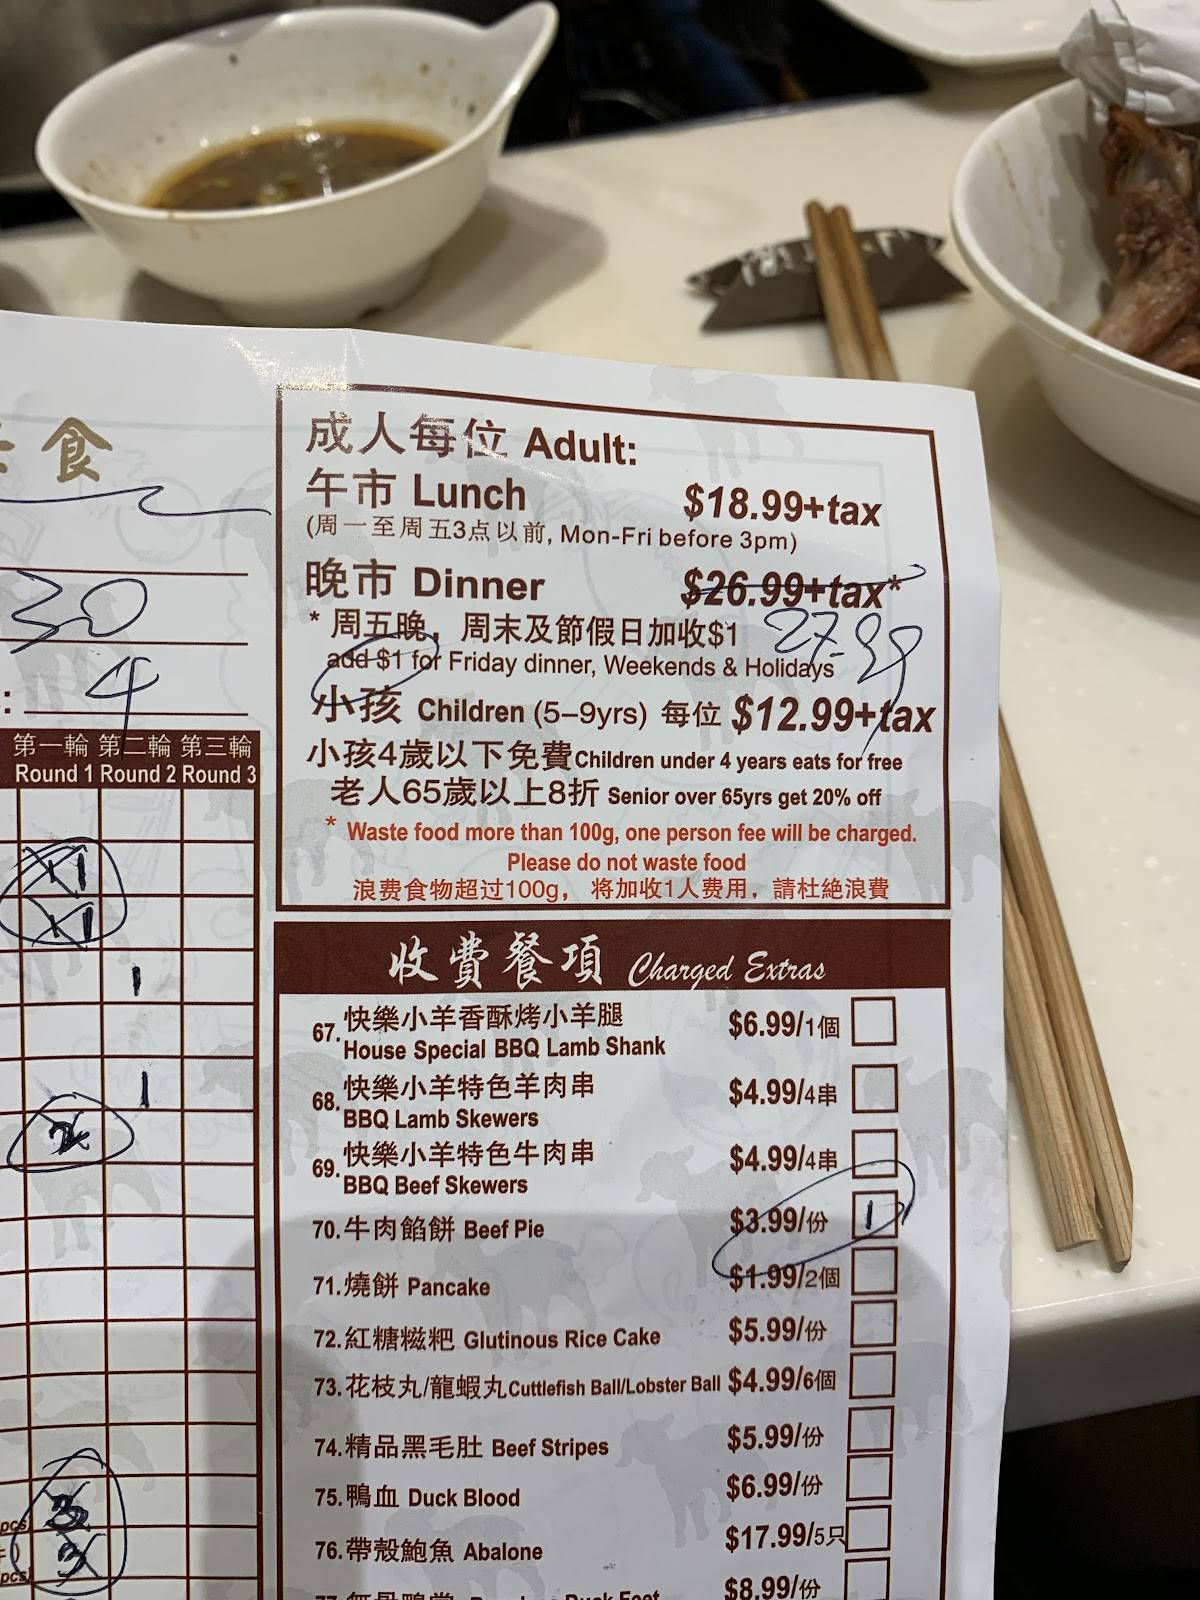 食
30
4
第一輪 第二輪 第三輪
Round 1 Round 2 Round 3
1
1
1
1
2
3
3
pcs
pcs)
成人每位 Adult:
午市 Lunch $18.99+tax
(周一至周五3点以前, Mon-Fri before 3pm)
晚市 Dinner $26.99+tax*
27.99
* 周五晚，周末及節假日加收$1
add $1 for Friday dinner, Weekends & Holidays
小孩 Children (5–9yrs) 每位 $12.99+tax
小孩4歲以下免費 Children under 4 years eats for free
老人65歲以上8折 Senior over 65yrs get 20% off
* Waste food more than 100g, one person fee will be charged.
Please do not waste food
浪费食物超过100g，将加收1人费用，請杜絶浪費
收費餐項 Charged Extras
67. 快樂小羊香酥烤小羊腿 $6.99/1個
House Special BBQ Lamb Shank
68. 快樂小羊特色羊肉串 $4.99/4串
BBQ Lamb Skewers
69. 快樂小羊特色牛肉串 $4.99/4串
BBQ Beef Skewers
70. 牛肉餡餅 Beef Pie $3.99/份 1
71. 燒餅 Pancake $1.99/2個
72. 紅糖糍粑 Glutinous Rice Cake $5.99/份
73. 花枝丸/龍蝦丸 Cuttlefish Ball/Lobster Ball $4.99/6個
74. 精品黑毛肚 Beef Stripes $5.99/份
75. 鴨血 Duck Blood $6.99/份
76. 帶殼鮑魚 Abalone $17.99/5只
77. 無骨鴨掌 Boneless Duck Feet $8.99/份